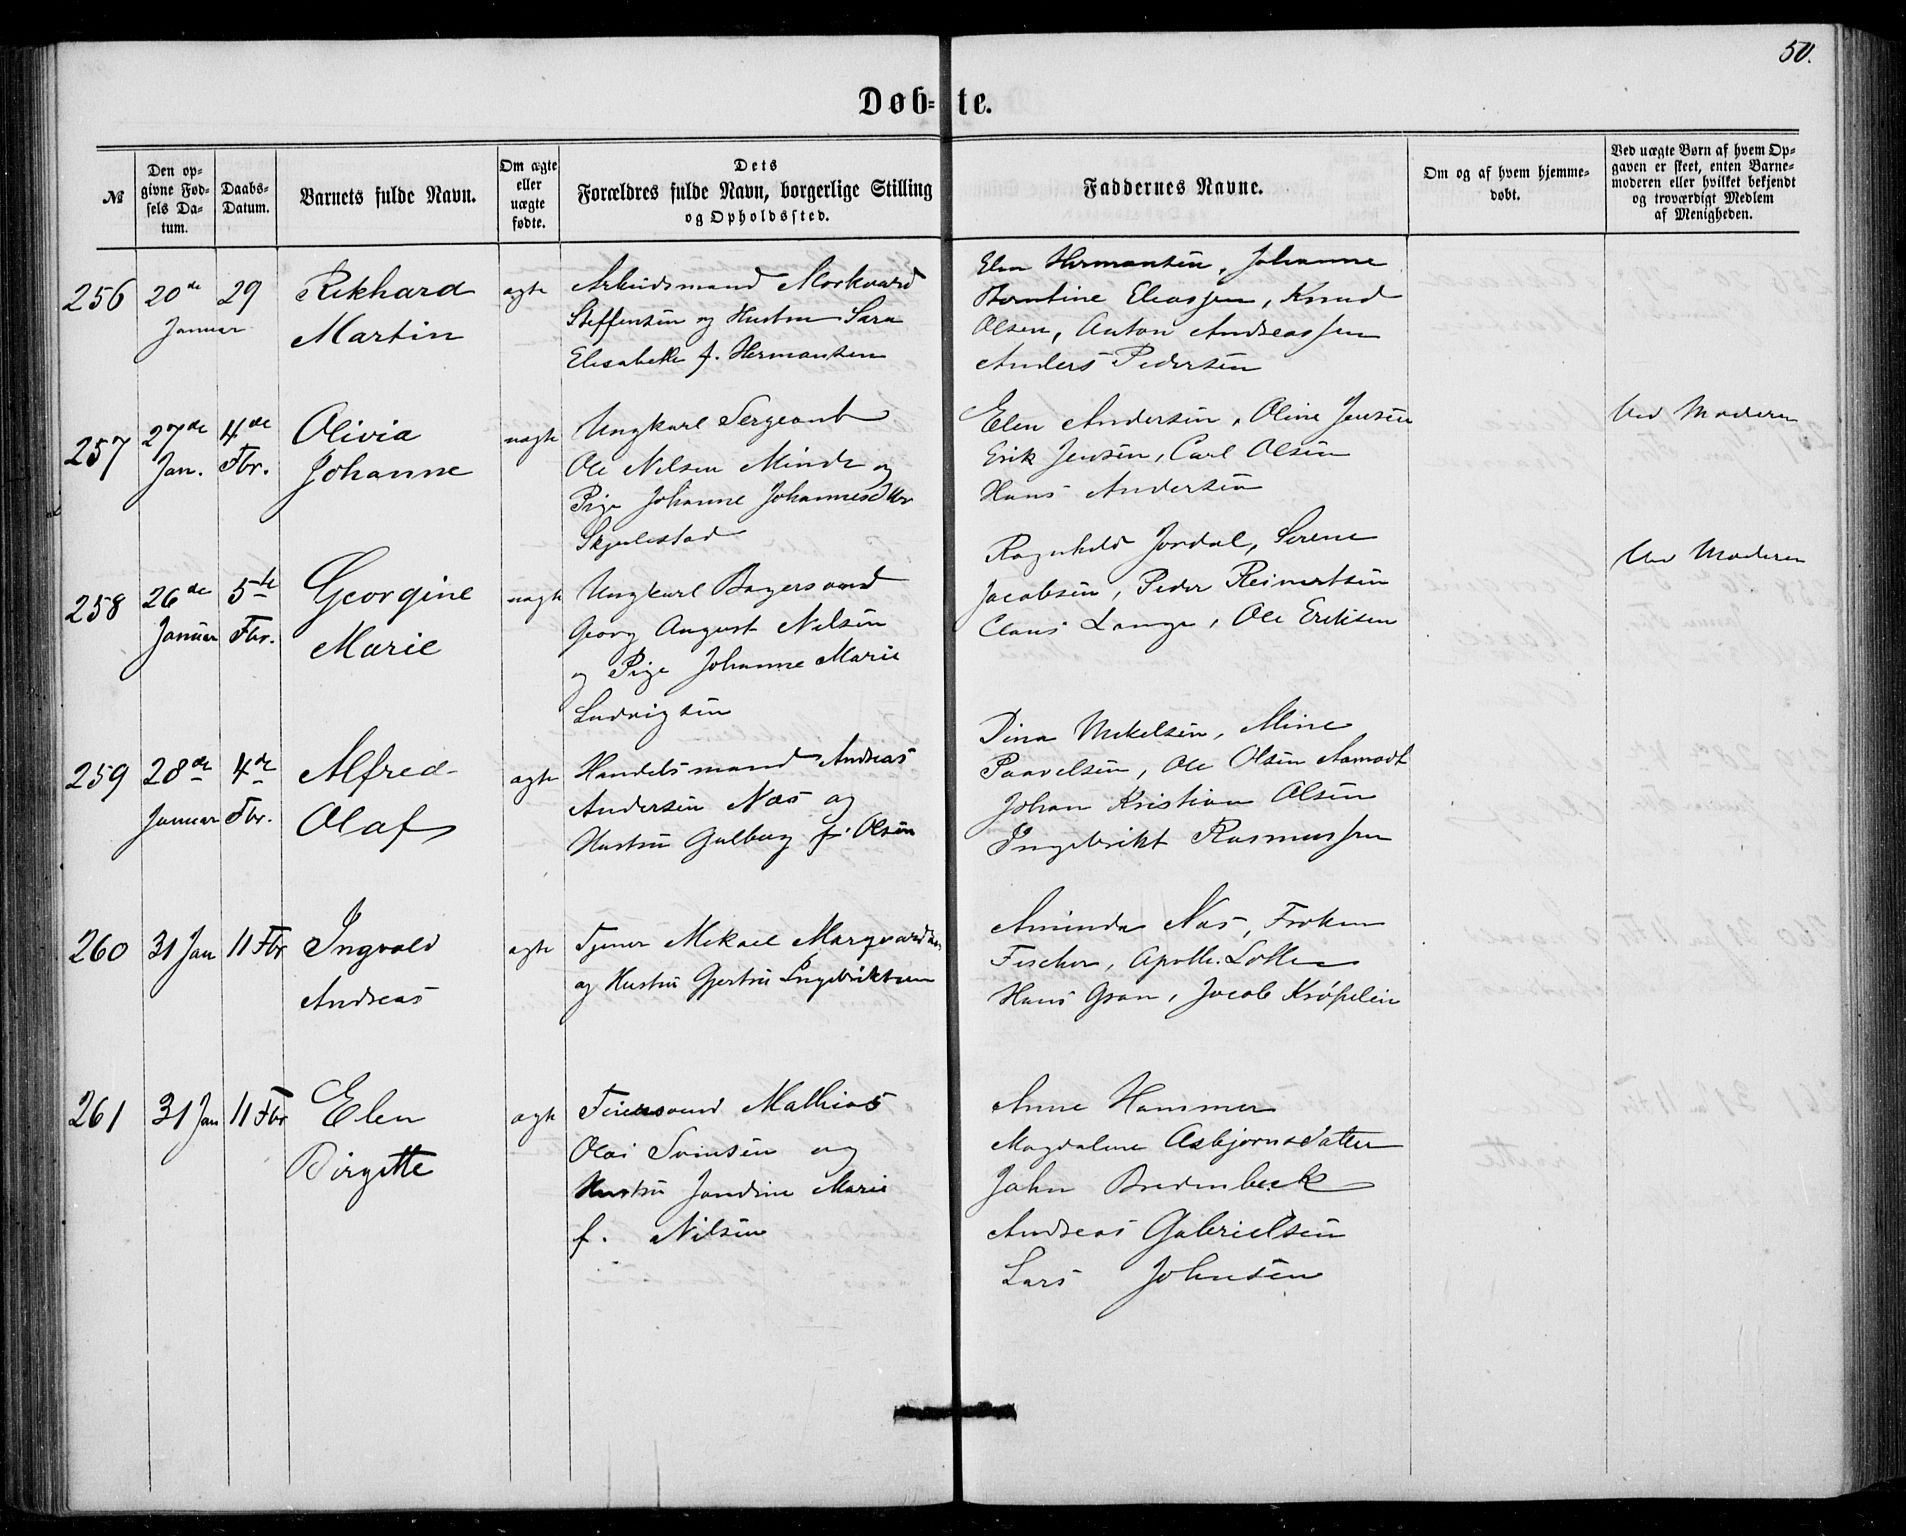 50.
Døb-te.
№
Den op-
givne Fød-
sels Da-
tum.
Daabs-
Datum.
Barnets fulde Navn.
Om ægte
eller
uægte
fødte.
Dets
Forældres fulde Navn, borgerlige Stilling
og Opholdssted.
Faddernes Navne.
Om og af hvem hjemme-
døbt.
Ved uægte Børn af hvem Op-
gaven er skeet, enten Barne-
moderen eller hvilket bekjendt
og troværdigt Medlem
af Menigheden.
256
20de
Januar
29
Rikhard
Martin
ægte
Arbeidsmand Morkvard
Steffensen og Hustru Sara
Elisabeth f. Hermansen
Elen Hermansen, Johanne
Berntine Eleassen, Knud
Olsen, Anton Andreassen
Anders Pedersen
257
27de
Jan.
4de
Fbr.
Olivia
Johanne
uægte
Ungkarl Sergeant
Ole Nilsen Minde og
Pige Johanne Johannesdtter
Skjelestad
Elen Andersen, Oline Jensen
Erik Jensen, Carl Olsen
Hans Andersen
Ved Moderen
258
26de
Januar
5te
Fbr.
Georgine
Marie
uægte
Ungkarl Bagersvend
Georg August Nilsen
og Pige Johanne Marie
Ludvigsen
Ragnhild Jordal, Serene
Jacobsen, Peder Reinertsen
Claus Lange, Ole Eriksen
Ved Moderen
259
28de
Januar
4de
Fbr.
Alfred
Olaf
ægte
Handelsmand Andreas
Andersen Næs og
Hustru Gulborg f. Olsen
Dina Mikelsen, Mine
Paavelsen, Ole Olsen Aamodt
Johan Kristian Olsen
Ingebrikt Rasmussen
260
31 Jan
11 Fbr
Ingvald
Andreas
ægte
Tjener Mikael Marqvardsen
og Hustru Gjertru Ingebriktsen
Aminda Næs, Frøken
Fischer, Apoth. Lothe
Hans Gran, Jacob Krøpelin
261
31 Jan
11 Fbr
Elen
Birgitte
ægte
Feiersvend Mathias
Olai Svinsen og
Hustru Jandine Marie
f. Nilsen
Anne Hammer
Magdalene Asbjørnsdatter
John Bredenbeck
Andreas Gabrielsen
Lars Johnsen